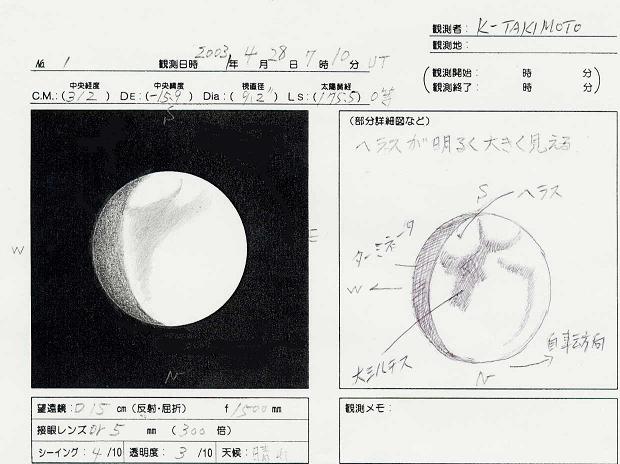 観測者：K-TAKIMOTO
観測地：
No. 1 観測日時 2003年 4月 28日 7時 10分 UT
(観測開始： 時 分)
(観測終了： 時 分)
中央経度 中央緯度 視直径 太陽黄経
C.M.:(312) DE:(-15.9) Dia:(9.2") Ls:(175.5) 0等
S
W
E
N
(部分詳細図など)
ヘラスが明るく大きく見える
S
ヘラス
ターミネータ
W
大シルチス
自転方向
N
望遠鏡：D 15 cm (反射・屈折) f 1500 mm
接眼レンズ Or 5 mm (300 倍)
シーイング：4/10 透明度：3/10 天候：晴れ
観測メモ：